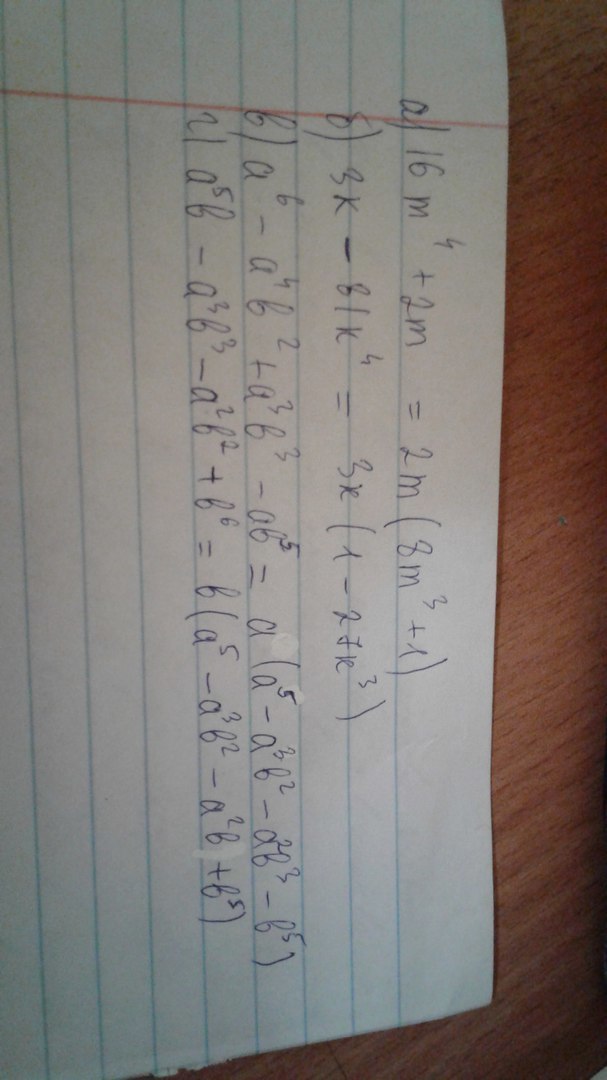 а) 16m⁴ + 2m = 2m(8m³+1)
б) 3x - 81x⁴ = 3x(1 - 27x³)
в) a⁶ - a⁴b² + a³b³ - ab⁵ = a(a⁵ - a³b² - a²b³ - b⁵)
г) a⁵b - a³b³ - a²b² + b⁶ = b(a⁵ - a³b² - a²b + b⁵)